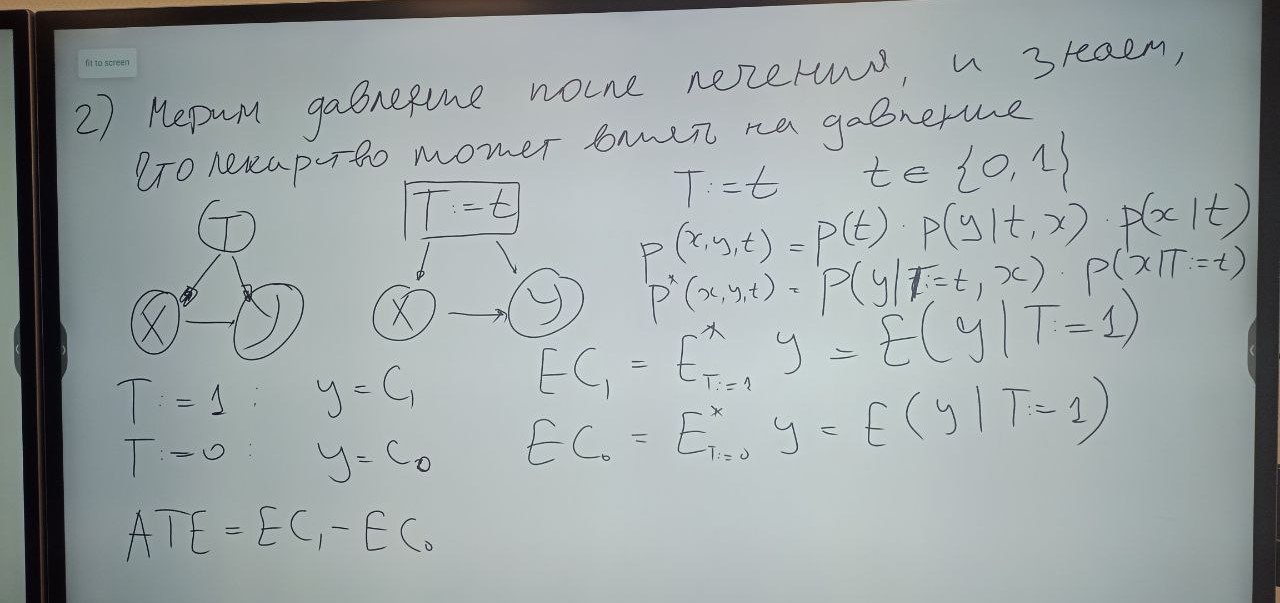 fit to screen
2) Мерим давление после лечения, и знаем,
что лекарство может влиять на давление
T := t t ∈ {0, 1}
T T := t
p(x,y,t) = p(t) · p(y|t, x) · p(x|t)
X Y X Y
p*(x,y,t) = p(y|T:=t, x) · p(x|T:=t)
T := 1 : y = C₁ EC₁ = E*_{T:=1} y = E(y|T:=1)
T := 0 : y = C₀ EC₀ = E*_{T:=0} y = E(y|T:=1)
ATE = EC₁ - EC₀